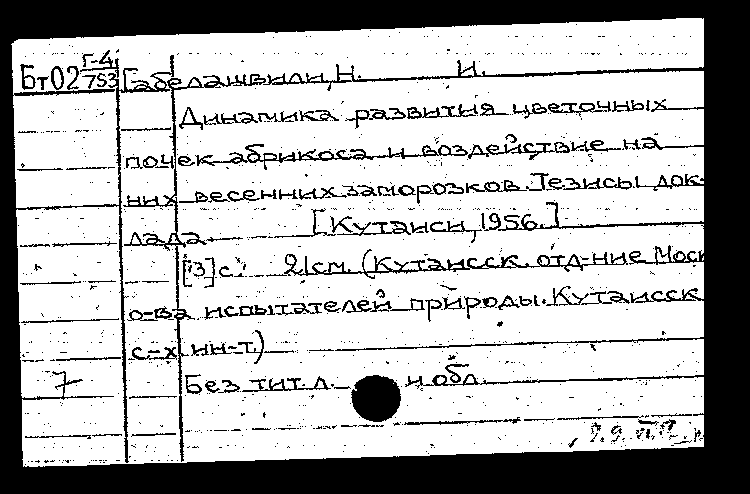 Бт02 Г-4/753 Габелашвили, Н. И.
Динамика развития цветочных
почек абрикоса и воздействие на
них весенних заморозков. Тезисы док-
лада. [Кутаиси, 1956.]
[3] с. 21 см. (Кутаисск. отд-ние Моск
о-ва испытателей природы. Кутаисск
с-х ин-т.)
7 Без тит. л. и обл.